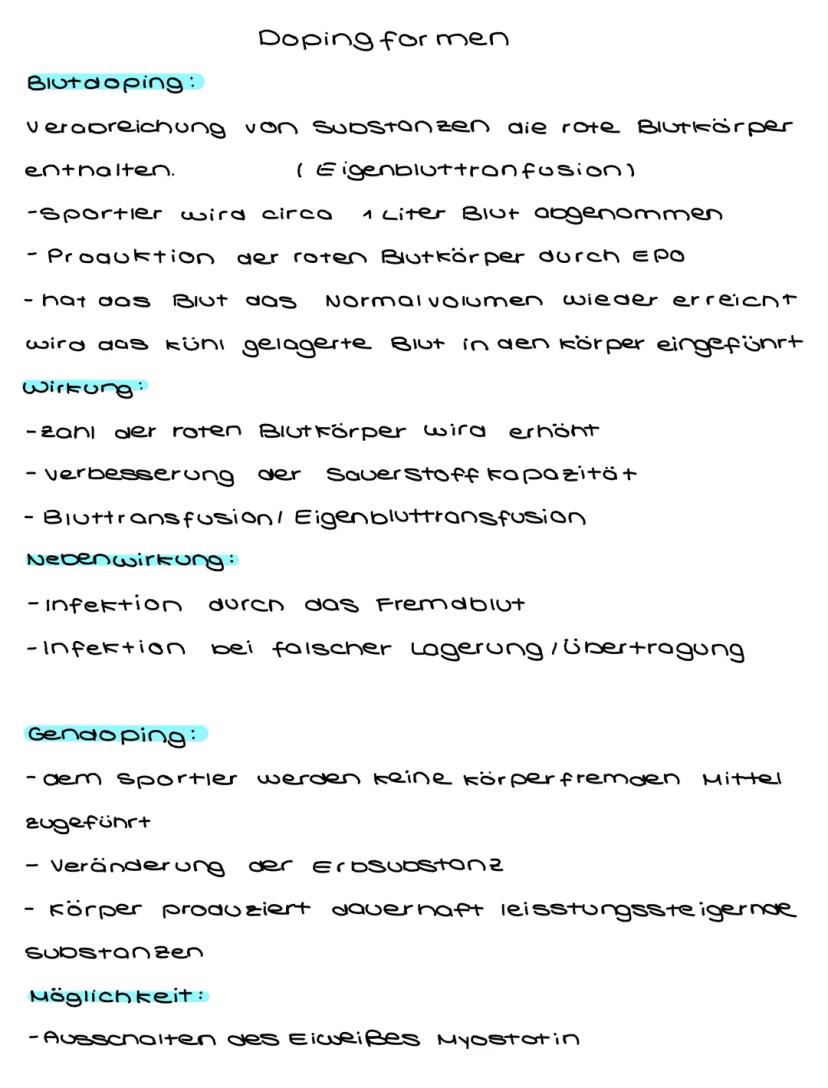 Dopingformen
Blutdoping:
Verabreichung von Substanzen die rote Blutkörper
enthalten. (Eigenbluttranfusion)
-Sportler wird circa 1 Liter Blut abgenommen
- Produktion der roten Blutkörper durch EPO
- hat das Blut das Normalvolumen wieder erreicht
wird das kühl gelagerte Blut in den Körper eingeführt
Wirkung:
-Zahl der roten Blutkörper wird erhöht
- Verbesserung der Sauerstoffkapazität
- Bluttransfusion/ Eigenbluttransfusion
Nebenwirkung:
- Infektion durch das Fremdblut
-Infektion bei falscher Lagerung/Übertragung
Gendoping:
- dem Sportler werden keine körperfremden Mittel
zugeführt
- Veränderung der Erbsubstanz
- Körper produziert dauerhaft leisstungssteigernde
Substanzen
Möglichkeit:
-Ausschalten des Eiweißes Myostatin